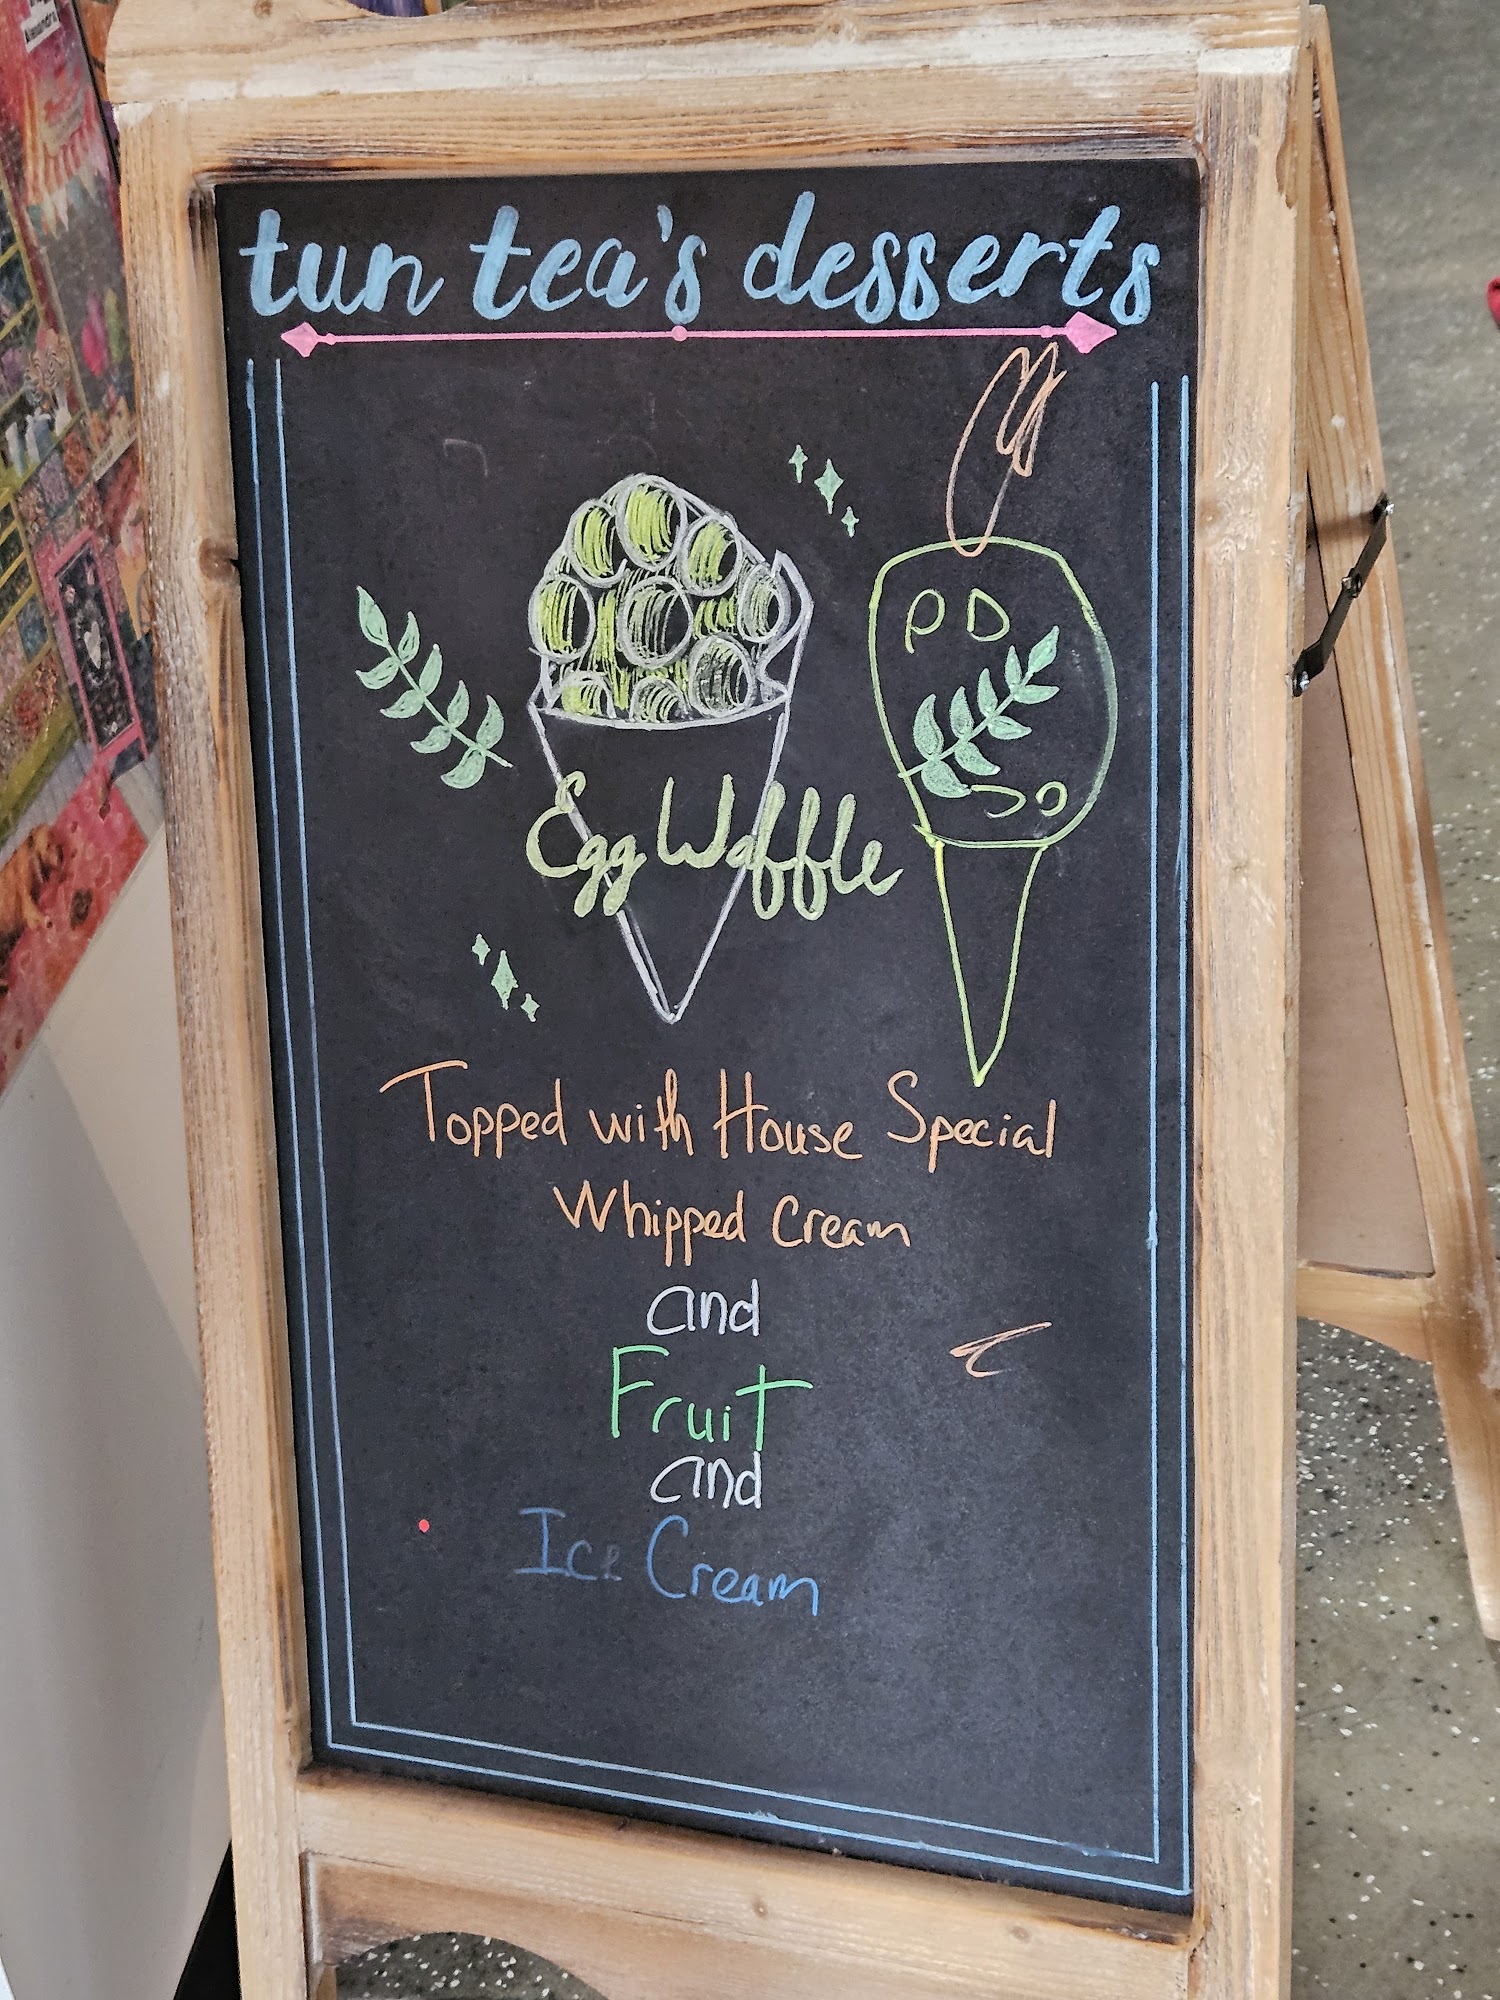 tun tea's desserts
Egg Waffle
Topped with House Special
Whipped Cream
and
Fruit
and
Ice Cream